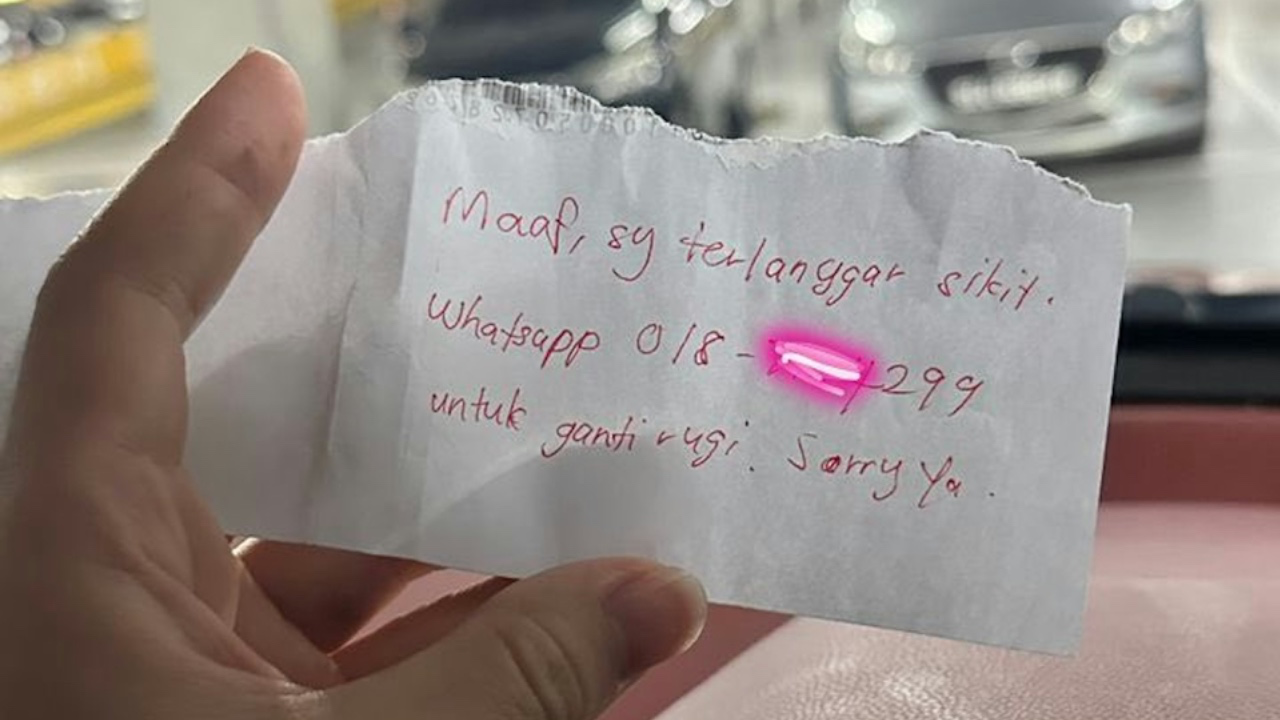 Maaf, sy terlanggar sikit.
Whatsapp 018 - 299
untuk ganti rugi. Sorry Ya.